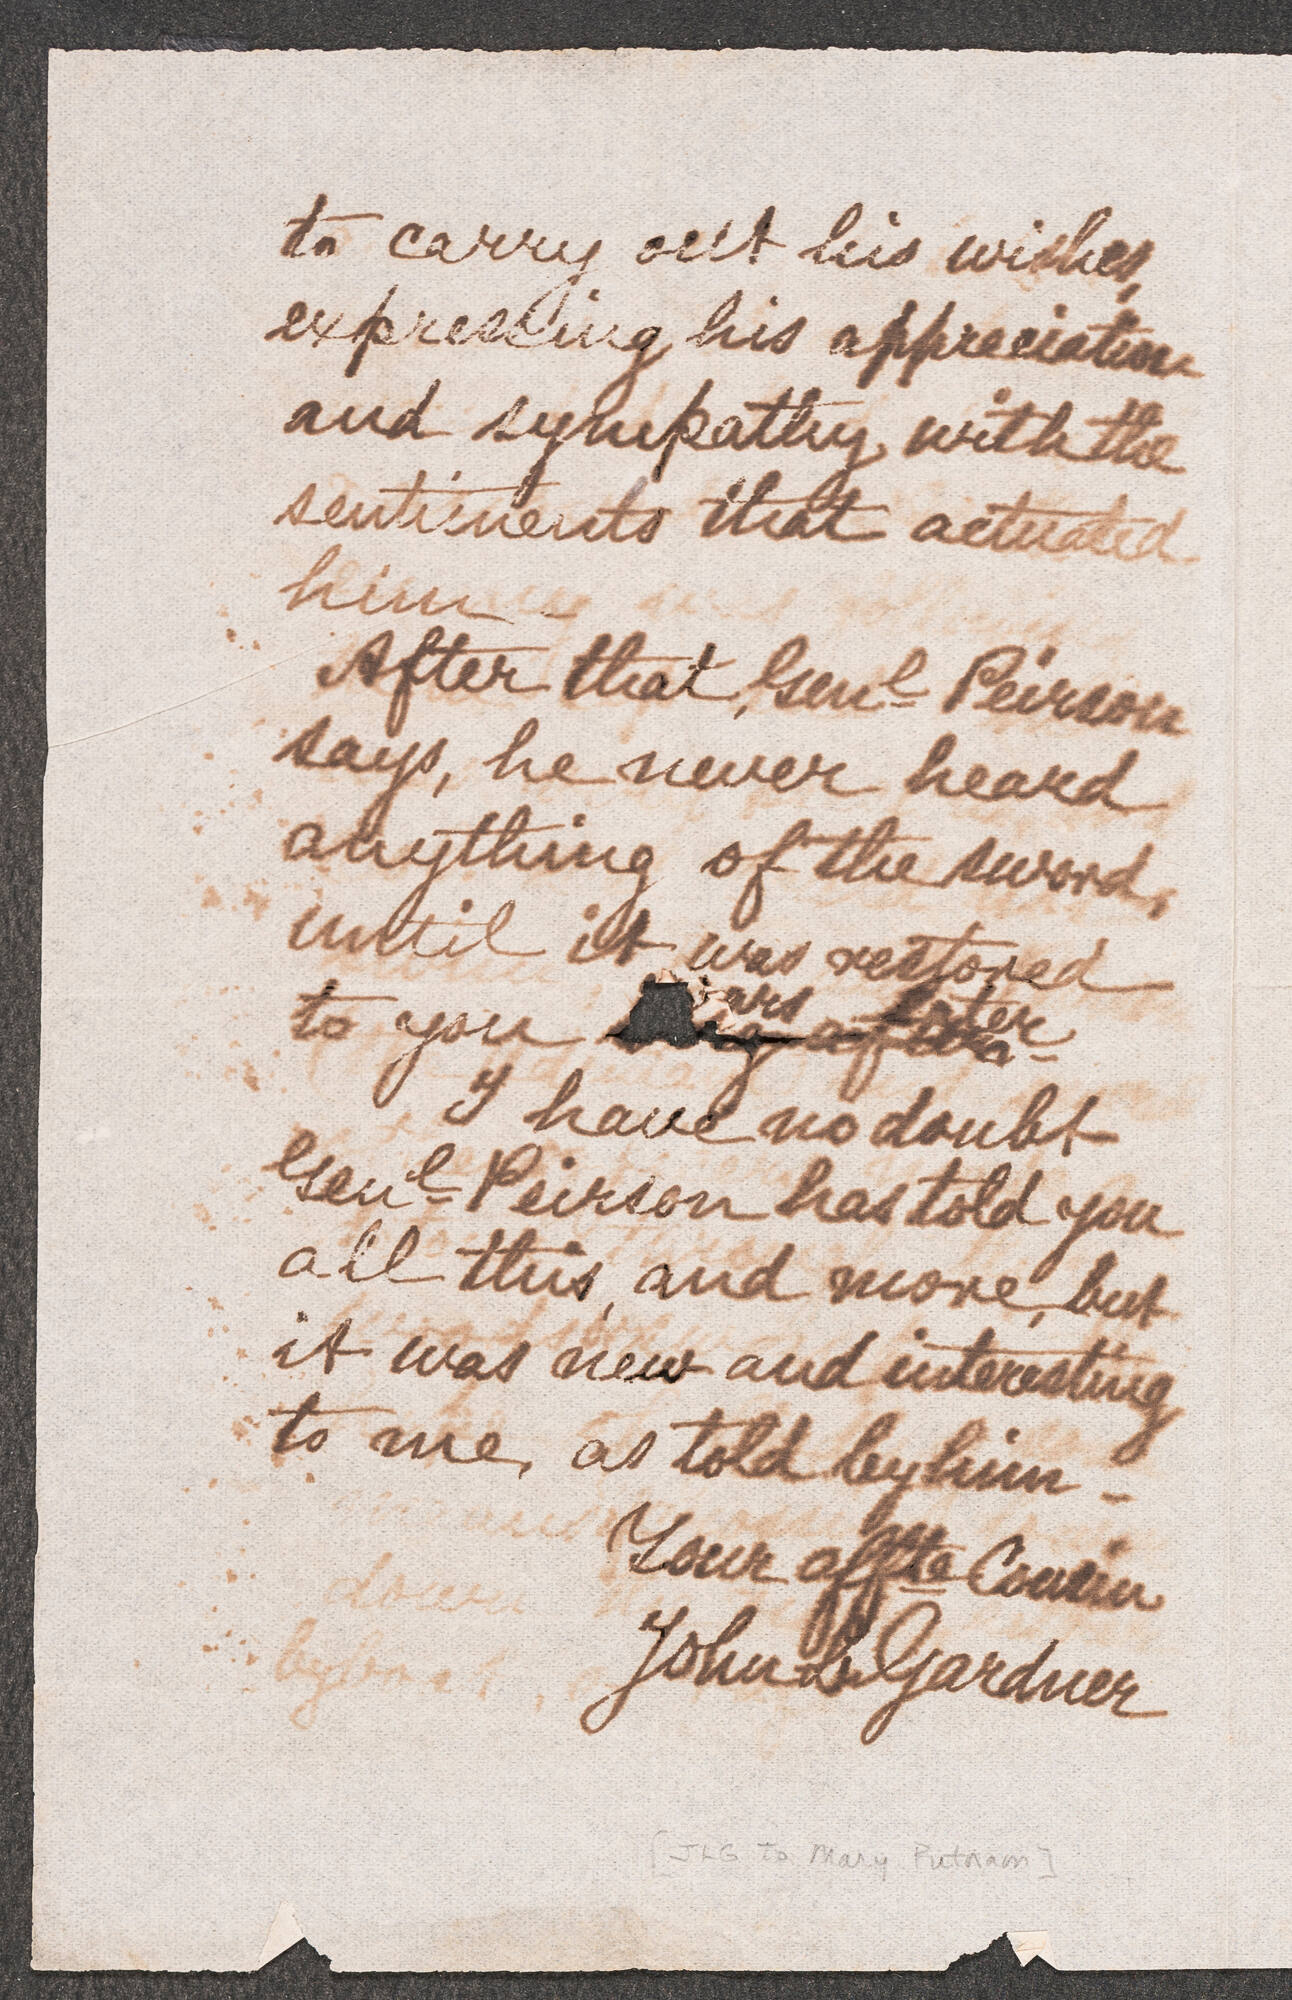 to carry out his wishes,
expressing his appreciation
and sympathy with the
sentiments that actuated
him –
After that, Genl Peirson
says, he never heard
anything of the sword,
until it was restored
later
to you after
I have no doubt
Genl Peirson has told you
all this, and more, but
it was new and interesting
to me, as told by him –
Your affte Cousin
John L Gardner
[JLG to Mary Putnam]